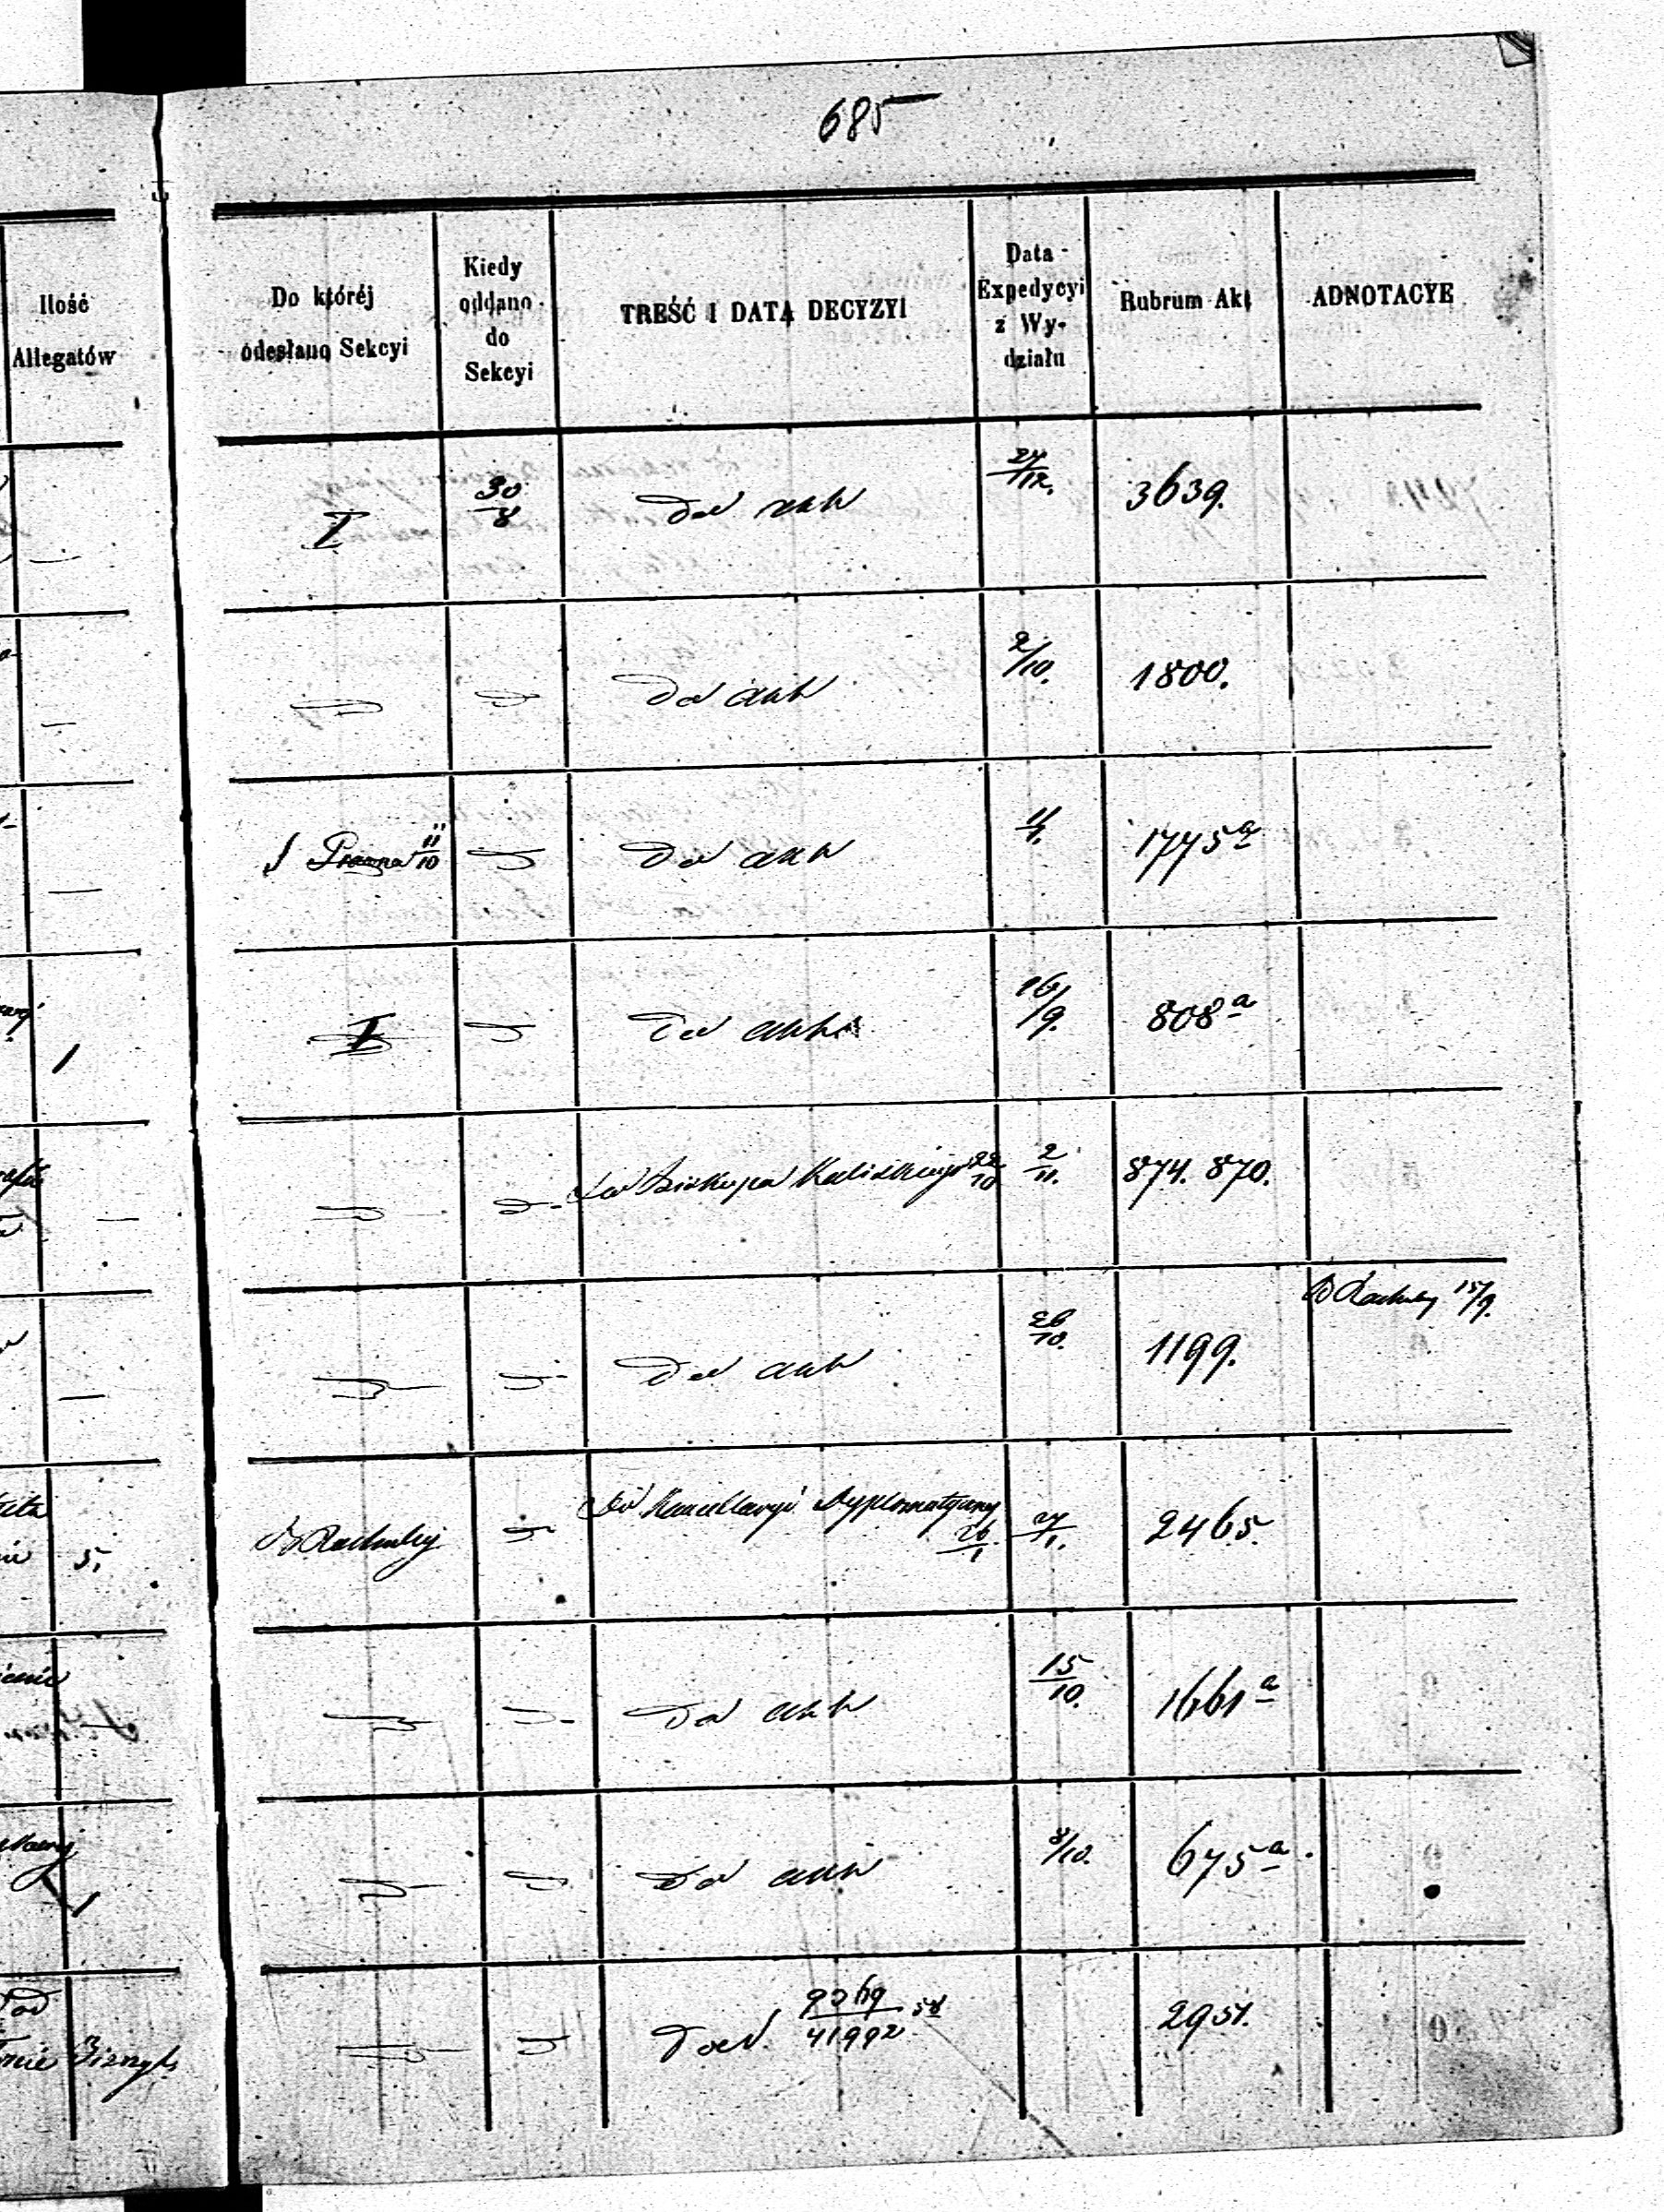 685
Ilość
Allegatów
Do któréj
odesłano Sekcyi
Kiedy
oddano
do
Sekcyi
TREŚĆ I DATA DECYZYI
Data
Expedycyi
z Wy-
działu
Rubrum Akt
ADNOTACYE
I 30/8 do akt 24/12. 3639.
do akt 2/10. 1800.
Prawna 11/10 do akt 1775 a
1 I do akt 16/9. 808 a
do Biskupa Kaliskiego 22/10 2/11. 874. 870.
B Rachuby 15/9.
do akt 26/10. 1199.
do Kancellaryi Dyplomatyczny
5, B Rachuby 26/1 27/1. 2465.
do akt 15/10. 1661 a
1 do akt 8/10. 675 a
do N. 9069/41992 58 2951.